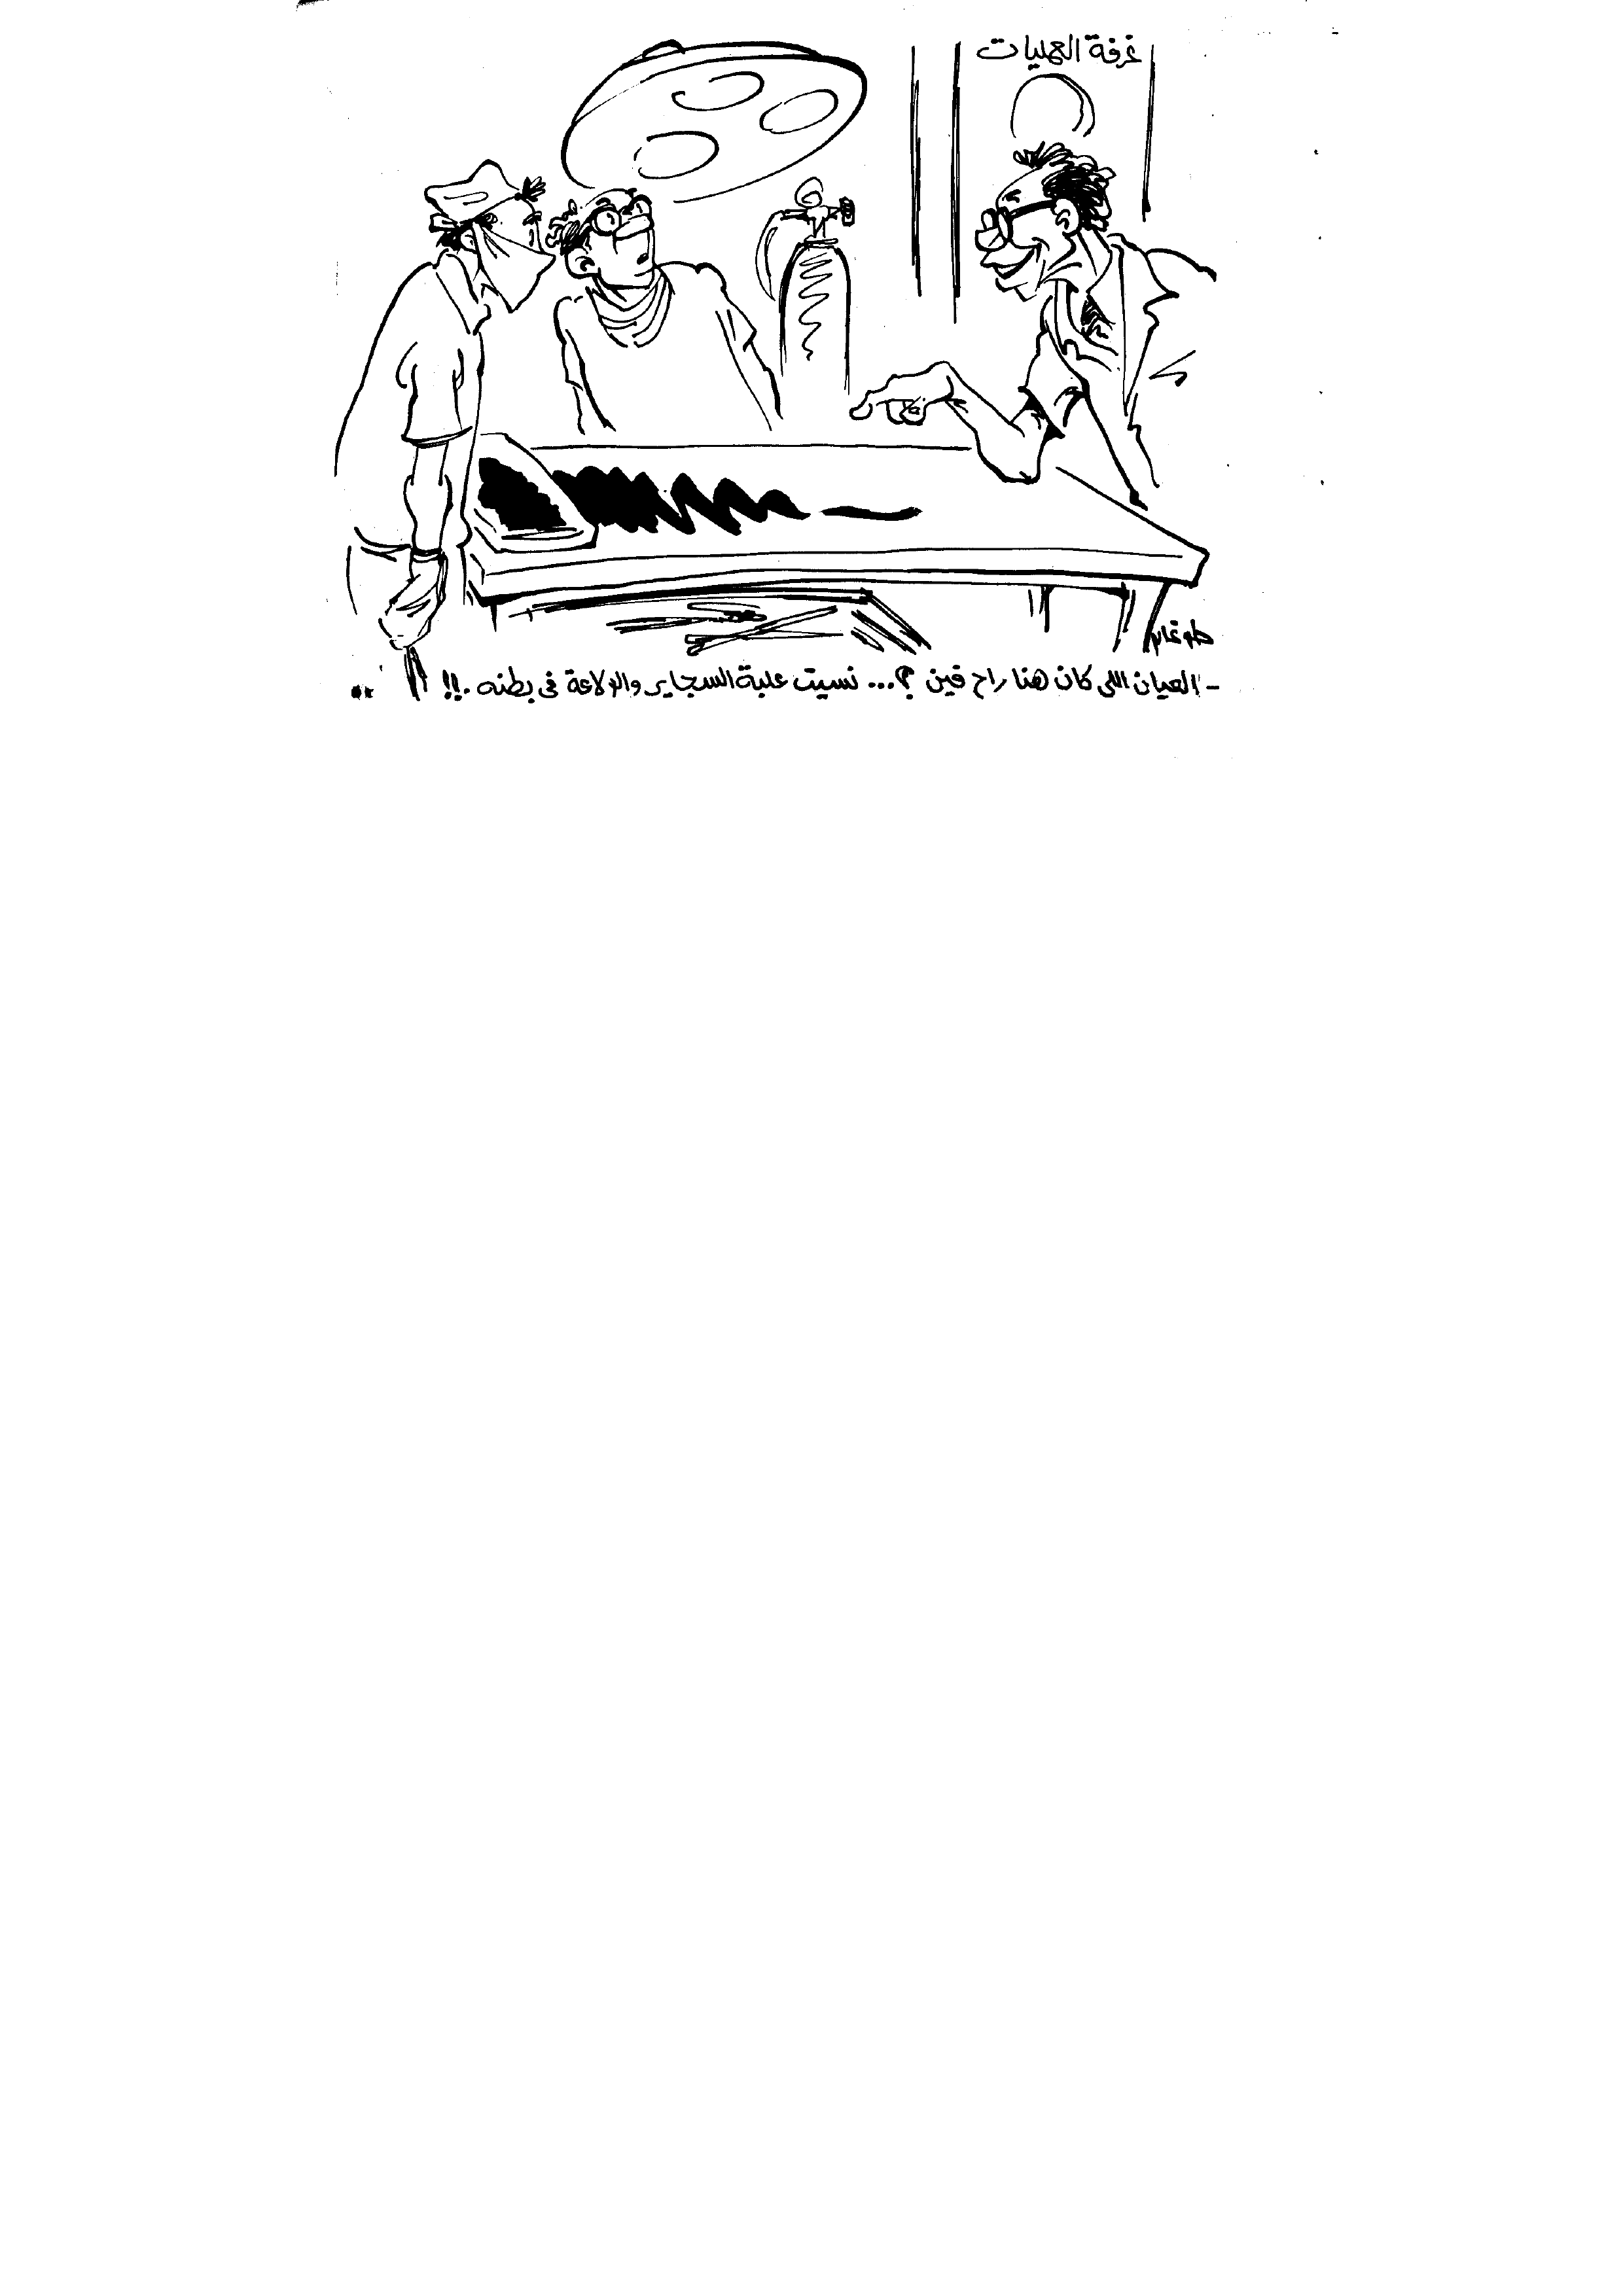 غرفة العمليات
طوغان
- العيان اللى كان هنا راح فين ؟... نسيت علبة السجاير والولاعة فى بطنه .!!